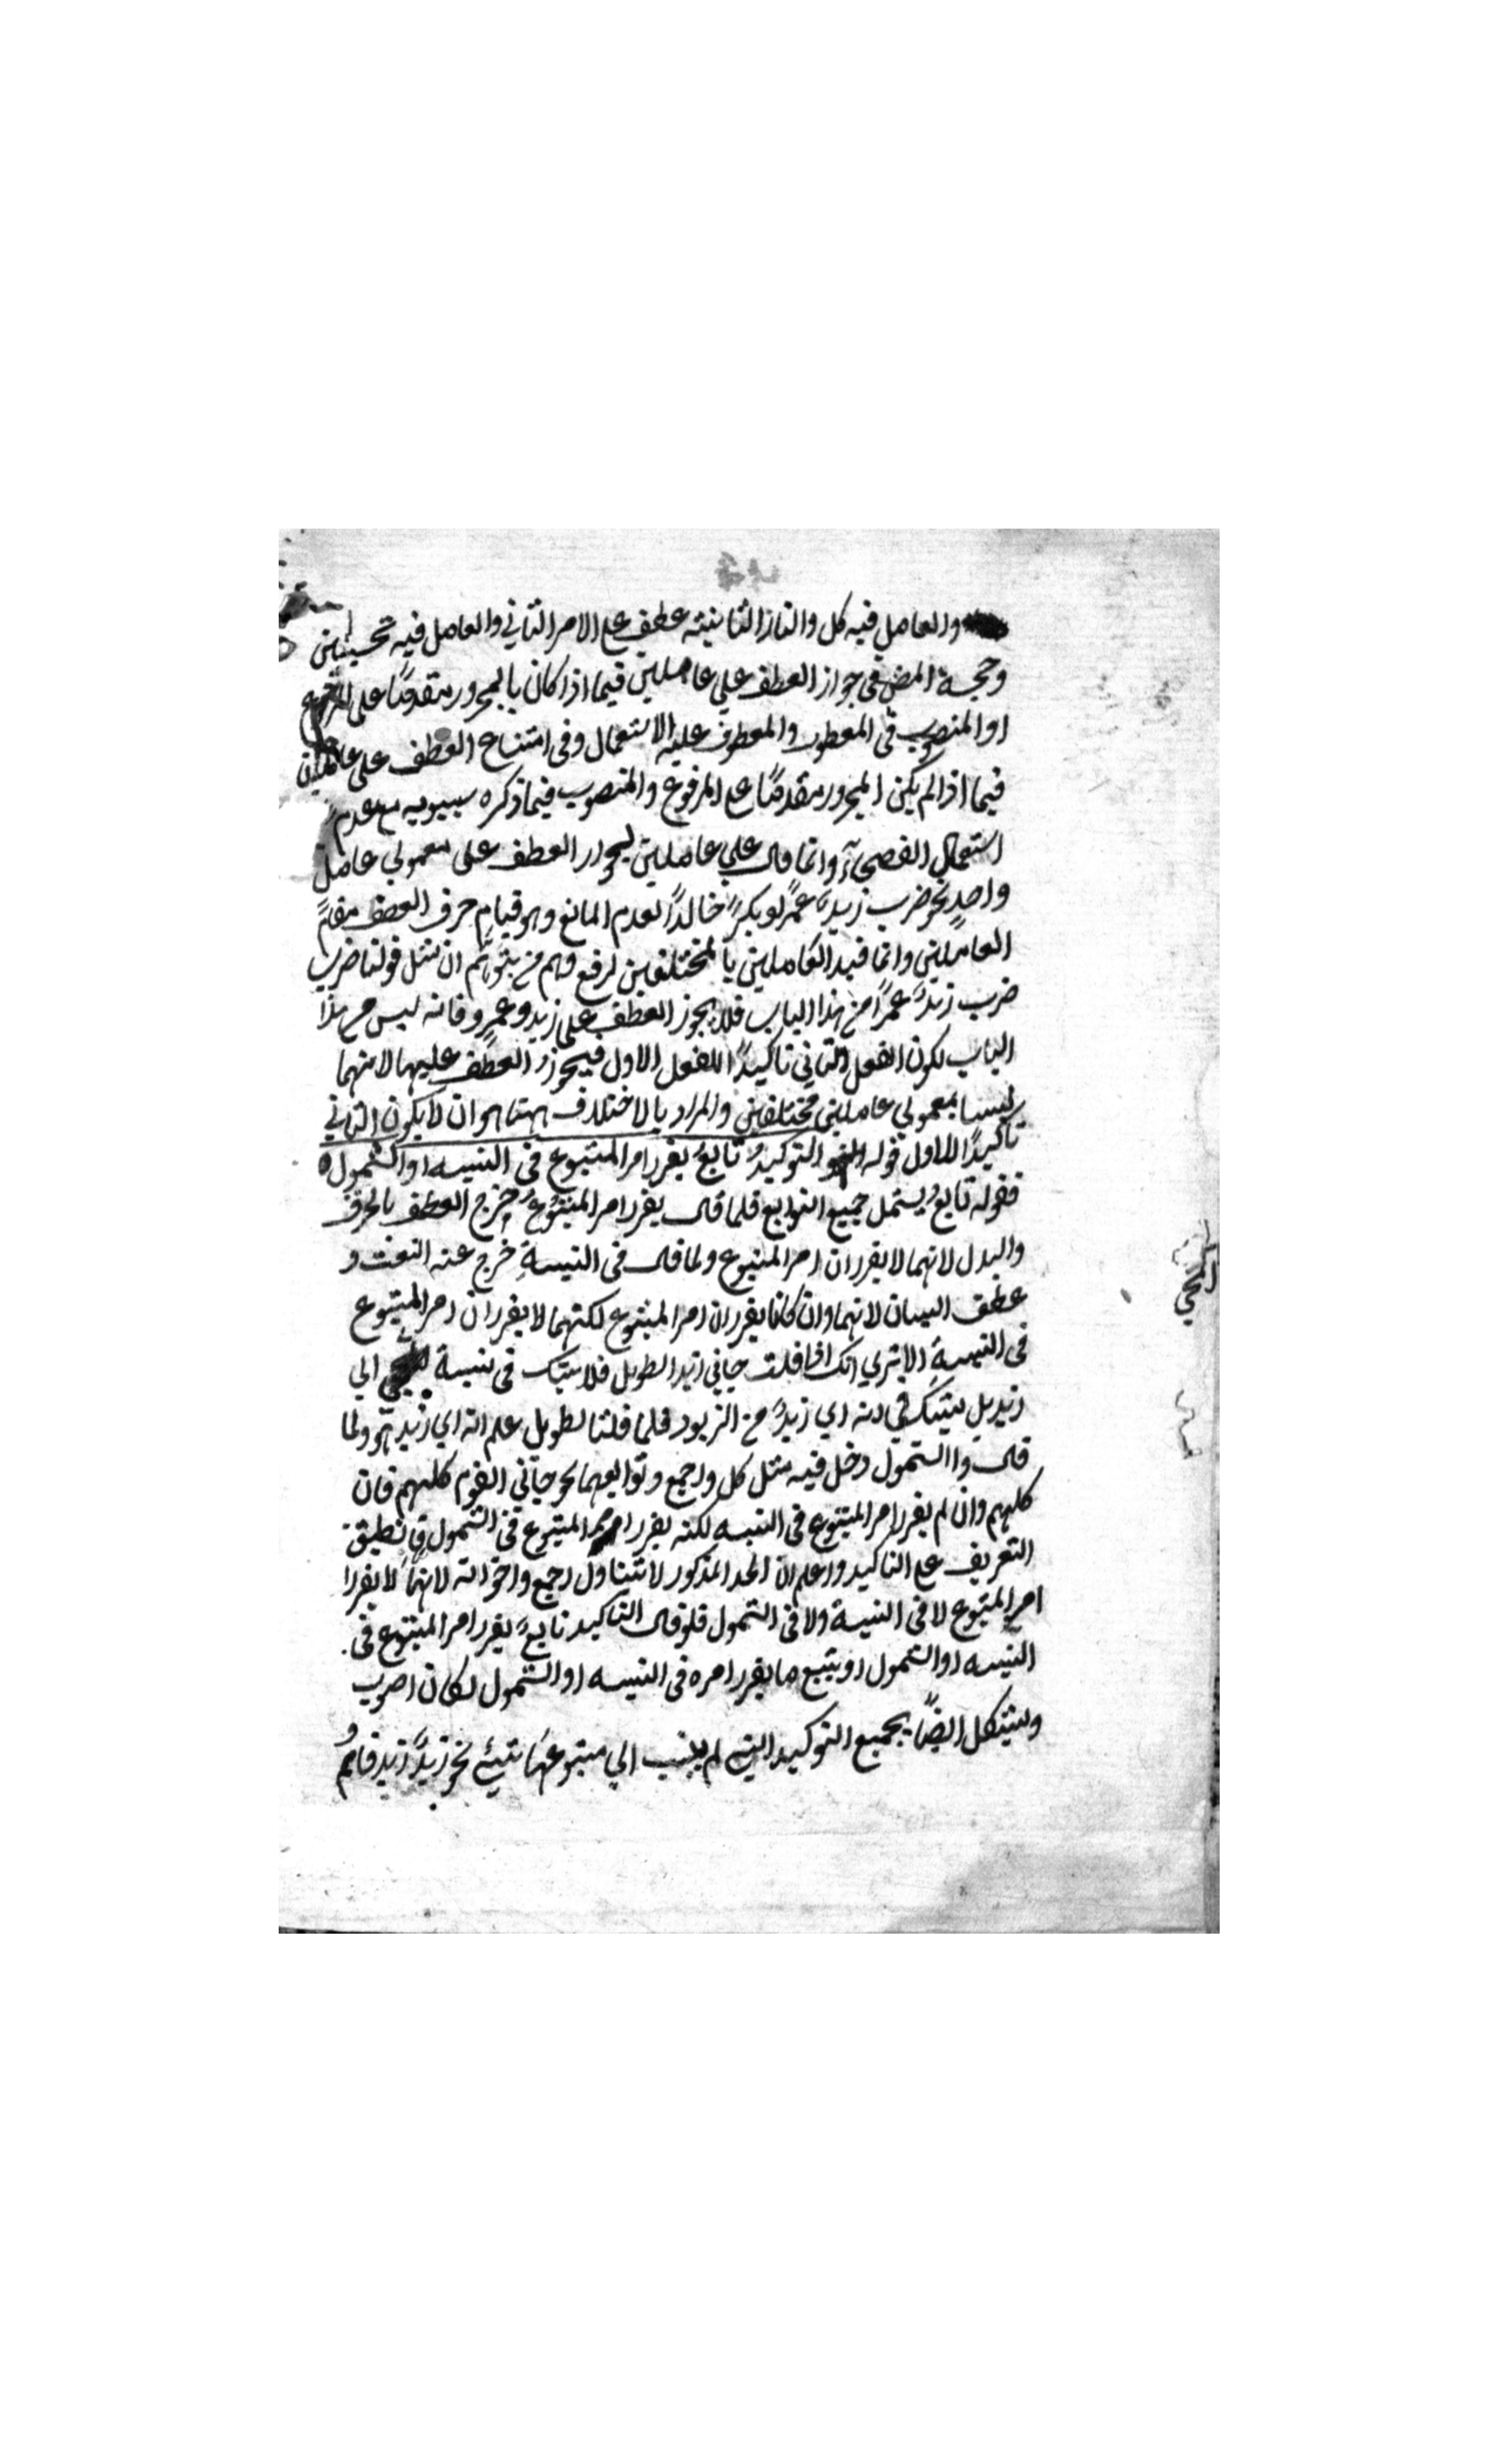 والعامل فيه كل والنار الثانية عطف على الامر الثاني والعامل فيه تحسبين
وحجة المص في جواز العطف علي عاملين فيما اذا كان بالمجرور متقدمًا على المرفوع
او المنصوب في المعطوف والمعطوف عليه الاستعمال وفي امتناع العطف على عاملين
فيما اذا لم يكن المجرور متقدمًا على المرفوع والمنصوب فيما ذكره سيبويه مع عدم
استعمال الفصحآء وانما قال علي عاملين ليجوز العطف على معمولي عامل
واحدٍ نحو ضرب زيدٌ عمرًا وبكرٌ خالدًا لعدم المانع وهو قيام حرف العطف مقام
العاملين وانما قيد العاملين بالمختلفين لرفع وهم من يتوهم ان مثل قولنا ضرب
ضرب زيدٌ عمرًا من هذا الباب فلا يجوز العطف على زيد وعمرو فانه ليس من هذا
الباب لكون الفعل الثاني تاكيدًا للفعل الاول فيجوز العطف عليهما لانهما
ليسا بمعمولي عاملين مختلفين والمراد بالاختلاف ههنا هو ان لا يكون الثاني
تاكيدًا للاول قوله التوكيد تابعٌ يقرر امر المتبوع في النسبه او الشمول
فقوله تابعٌ يشمل جميع التوابع فلما قال يقرر امر المتبوع خرج العطف بالحرف
والبدل لانهما لا يقرران امر المتبوع ولما قال في النسبةِ خرج عنه النعت و
عطف البيان لانهما وان كانا يقرران امر المتبوع لكنهما لا يقرران امر المتبوع
في النسبةِ الا يتري انك اذا قلت جاني زيد الطويل فلا يشك في نسبة المجي الي
زيد بل يشك في انه اي زيدٍ من الزيود فلما قلنا الطويل علم انه اي زيد هو ولما
قال واالشمول دخل فيه مثل كل واجمع وتوابعهما نحو جاني القوم كلهم فان
كلهم وان لم يقرر امر المتبوع في النسبه لكنه يقرر امر المتبوع في الشمول فانطبق
التعريف على التاكيد واعلم ان الحد المذكور لا تتناول اجمع واخواته لانهما لا يقررا
امر المتبوع لا في النسبة ولا في الشمول فلو قال التاكيد تابعٌ يقرر امر المتبوع في
النسبه او الشمول او يتبع ما يقرر امره في النسبه او الشمول لكان اصوب
ويشكل ايضًا بجميع التوكيد التي لم ينسب الي متبوعها شيئ نحو زيدٌ زيد قائمٌ
المجي